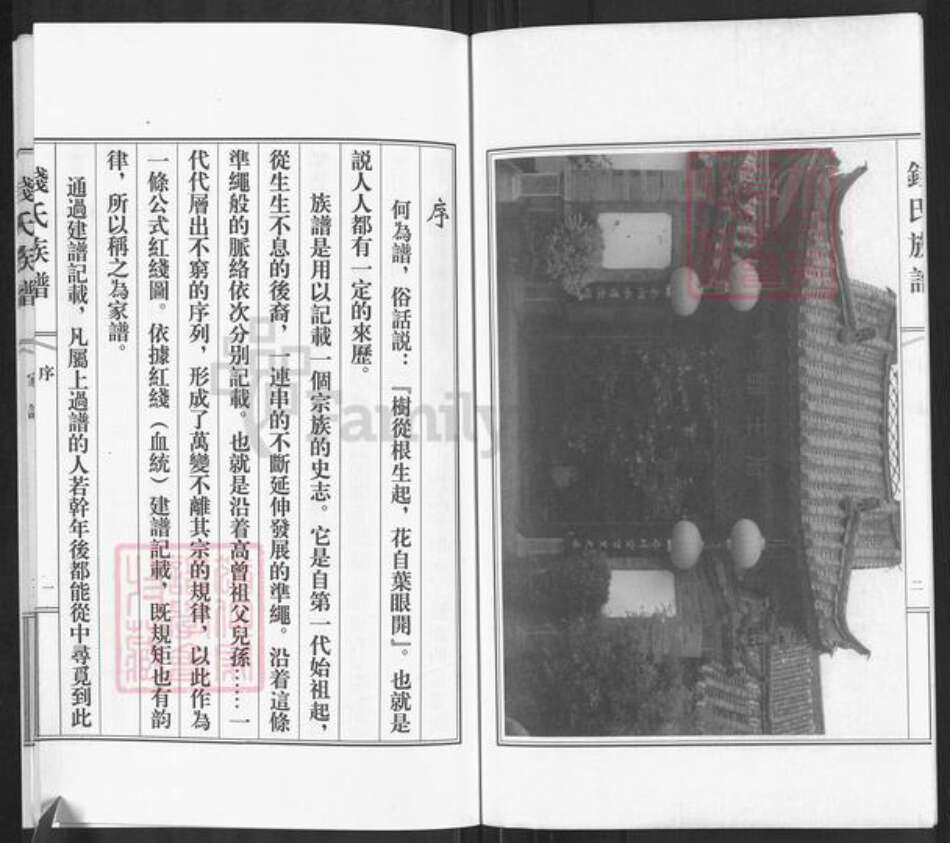 錢氏族譜
序
何為譜，俗話説：『樹從根生起，花自葉眼開』。也就是
説人人都有一定的來歷。
族譜是用以記載一個宗族的史志。它是自第一代始祖起，
從生生不息的後裔，一連串的不斷延伸發展的準繩。沿着這條
準繩般的脈絡依次分別記載。也就是沿着高曾祖父兒孫……一
代代層出不窮的序列，形成了萬變不離其宗的規律，以此作為
一條公式紅綫圖。依據紅綫（血統）建譜記載，既規矩也有韵
律，所以稱之為家譜。
通過建譜記載，凡屬上過譜的人若幹年後都能從中尋覓到此
錢氏族譜
序
一
錢氏族譜
Family